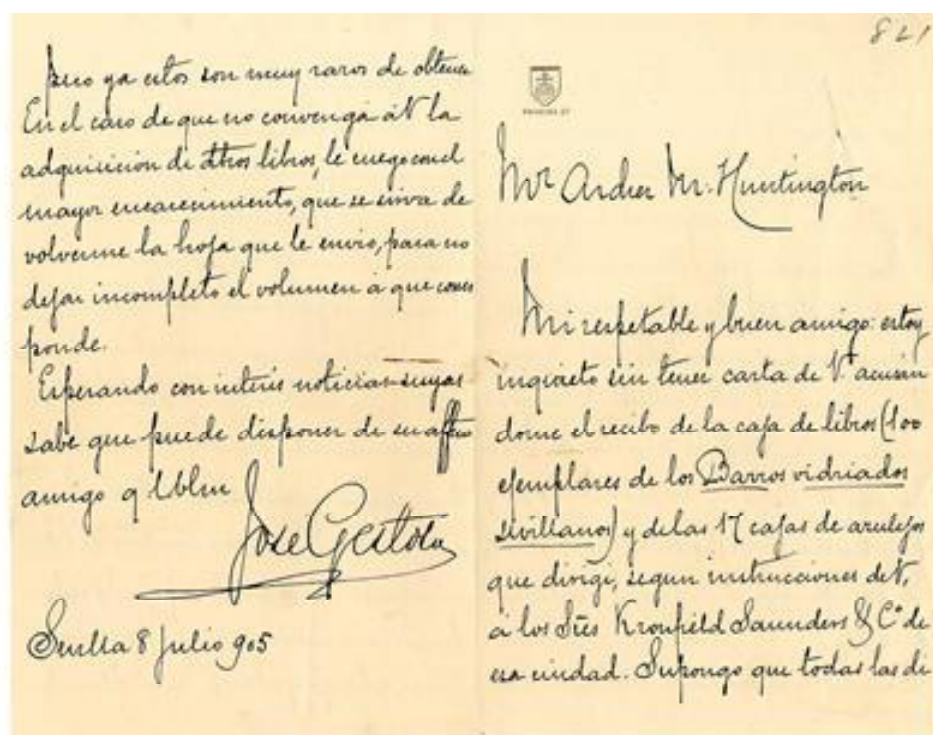 pero ya estos son muy raros de obtener
En el caso de que no convenga á V la
adquisición de dhos libros, le ruego con el
mayor encarecimiento, que se sirva de
volverme la hoja que le envio, para no
dejar incompleto el volumen á que corres
ponde.
Esperando con interés noticias suyas
sabe que puede disponer de su affmo
amigo q
José Gestoso
Sevilla 8 Julio 905
821
Mr Archer M. Huntington
Mi respetable y buen amigo: estoy
inquieto sin tener carta de V. acusan
dome el recibo de la caja de libros (100
ejemplares de los Barros vidriados
sevillanos) y de las 17 cajas de azulejos
que dirigí, segun instrucciones de V,
á los Sres Kronfeld Saunders & Cº de
esa ciudad. Supongo que todas las di